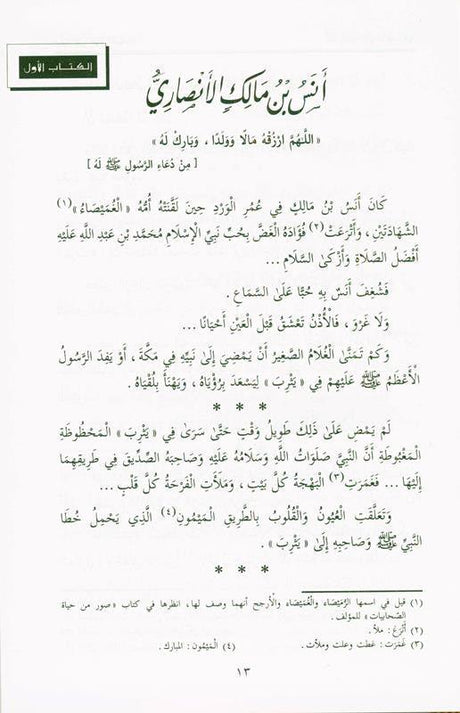 الكتاب الأول
أَنَسُ بْنُ مَالِكٍ الأَنْصَارِيُّ
« اللَّهُمَّ ارْزُقْهُ مَالًا وَوَلَدًا ، وَبَارِكْ لَهُ »
[ مِنْ دُعَاءِ الرَّسُولِ ﷺ لَهُ ]
كَانَ أَنَسُ بْنُ مَالِكٍ فِي عُمُرِ الْوَرْدِ حِينَ لَقَّنَتْهُ أُمُّهُ « الْغُمَيْصَاءُ »(١)
الشَّهَادَتَيْنِ ، وَأَتْرَعَتْ(٢) فُؤَادَهُ الْغَضَّ بِحُبِّ نَبِيِّ الْإِسْلَامِ مُحَمَّدِ بْنِ عَبْدِ اللَّهِ عَلَيْهِ
أَفْضَلُ الصَّلَاةِ وَأَزْكَىٰ السَّلَامِ ...
فَشُغِفَ أَنَسٌ بِهِ حُبًّا عَلَىٰ السَّمَاعِ .
وَلَا غَرْوَ ، فَالْأُذْنُ تَعْشَقُ قَبْلَ الْعَيْنِ أَحْيَانًا ...
وَكَمْ تَمَنَّىٰ الْغُلَامُ الصَّغِيرُ أَنْ يَمْضِيَ إِلَىٰ نَبِيِّهِ فِي مَكَّةَ ، أَوْ يَفِدَ الرَّسُولُ
الْأَعْظَمُ ﷺ عَلَيْهِمْ فِي « يَثْرِبَ » لِيَسْعَدَ بِرُؤْيَاهُ ، وَيَهْنَأَ بِلُقْيَاهُ .
* * *
لَمْ يَمْضِ عَلَىٰ ذَلِكَ طَوِيلُ وَقْتٍ حَتَّىٰ سَرَىٰ فِي « يَثْرِبَ » الْمَحْظُوظَةِ
الْمَغْبُوطَةِ أَنَّ النَّبِيَّ صَلَوَاتُ اللَّهِ وَسَلَامُهُ عَلَيْهِ وَصَاحِبَهُ الصِّدِّيقَ فِي طَرِيقِهِمَا
إِلَيْهَا ... فَغَمَرَتِ(٣) الْبَهْجَةُ كُلَّ بَيْتٍ ، وَمَلَأَتِ الْفَرْحَةُ كُلَّ قَلْبٍ ...
وَتَعَلَّقَتِ الْعُيُونُ وَالْقُلُوبُ بِالطَّرِيقِ الْمَيْمُونِ(٤) الَّذِي يَحْمِلُ خُطَا
النَّبِيِّ ﷺ وَصَاحِبِهِ إِلَىٰ « يَثْرِبَ » .
* * *
(١) قيل في اسمها الرُّمَيْصَاء والْغُمَيْصَاء والأرجح أنهما وصف لها، انظرها في كتاب «صور من حياة
الصحابيات» للمؤلف .
(٢) أَتْرَعَ : ملأ .
(٣) غَمَرَت : غطت وعلت وملأت . (٤) الْمَيْمُون : المبارك .
١٣